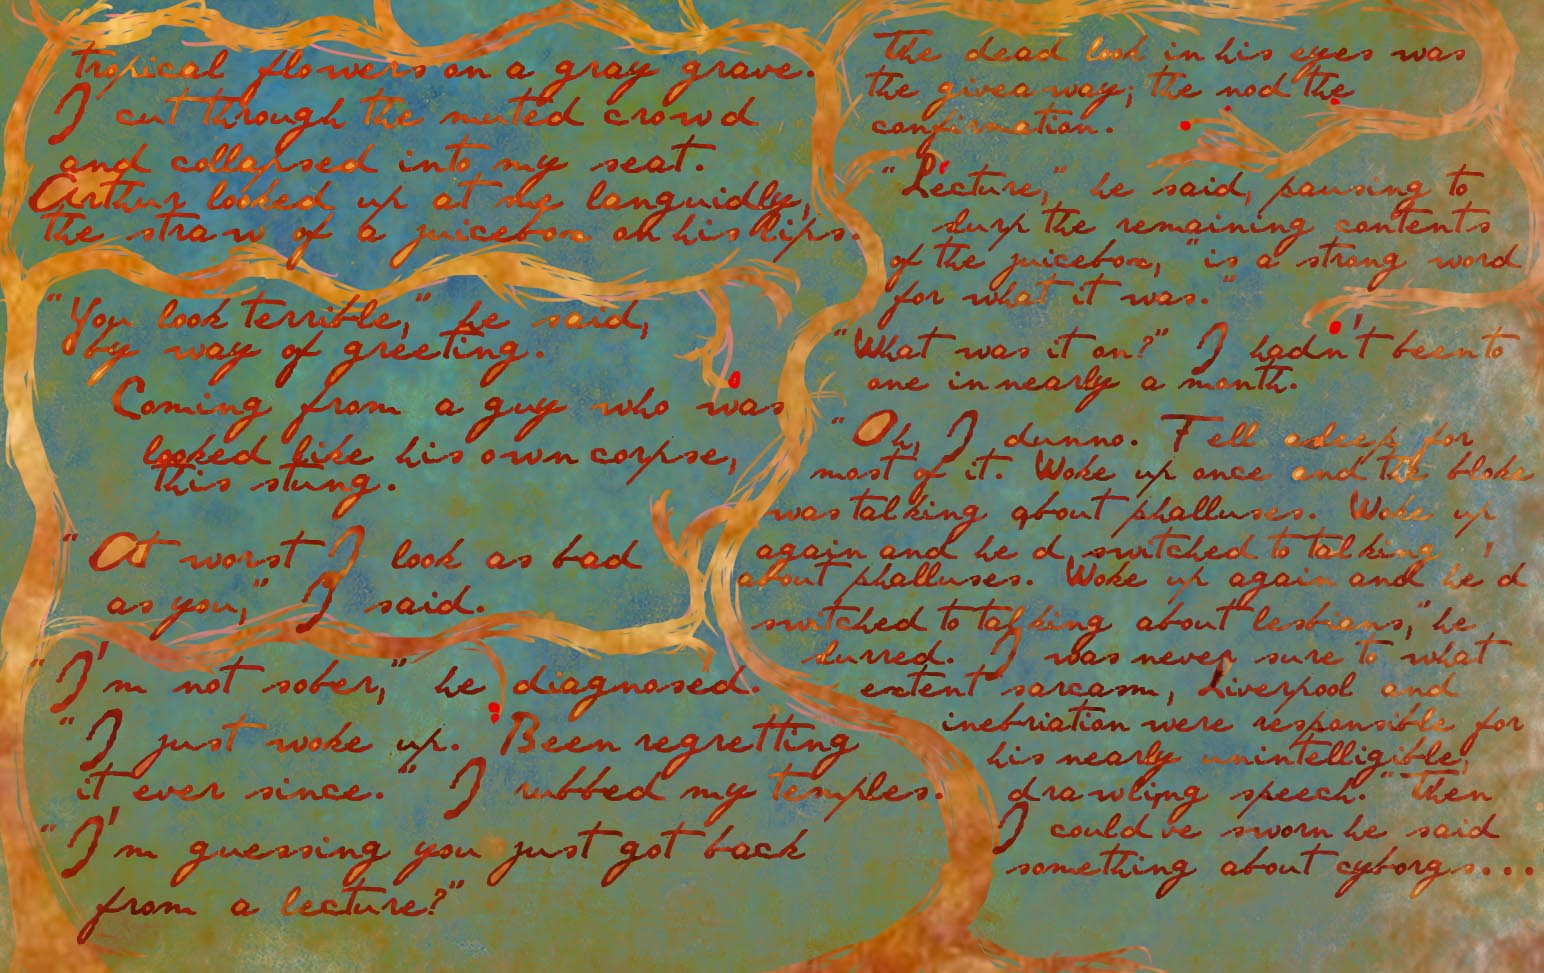 tropical flowers on a gray grave.
I cut through the muted crowd
and collapsed into my seat.
Arthur looked up at me languidly,
the straw of a juicebox on his lips.
"You look terrible," he said,
by way of greeting.
Coming from a guy who was
looked like his own corpse,
this stung.
"At worst I look as bad
as you," I said.
"I'm not sober," he diagnosed.
"I just woke up. Been regretting
it ever since." I rubbed my temples.
"I'm guessing you just got back
from a lecture?"
The dead look in his eyes was
the giveaway; the nod the
confirmation.
"Lecture," he said, pausing to
slurp the remaining contents
of the juicebox, "is a strong word
for what it was."
"What was it on?" I hadn't been to
one in nearly a month.
"Oh, I dunno. Fell asleep for
most of it. Woke up once and the bloke
was talking about phalluses. Woke up
again and he'd switched to talking
about phalluses. Woke up again and he'd
switched to talking about lesbians," he
slurred. I was never sure to what
extent sarcasm, Liverpool and
inebriation were responsible for
his nearly unintelligible,
drawling speech. "Then
I could've sworn he said
something about cyborgs...